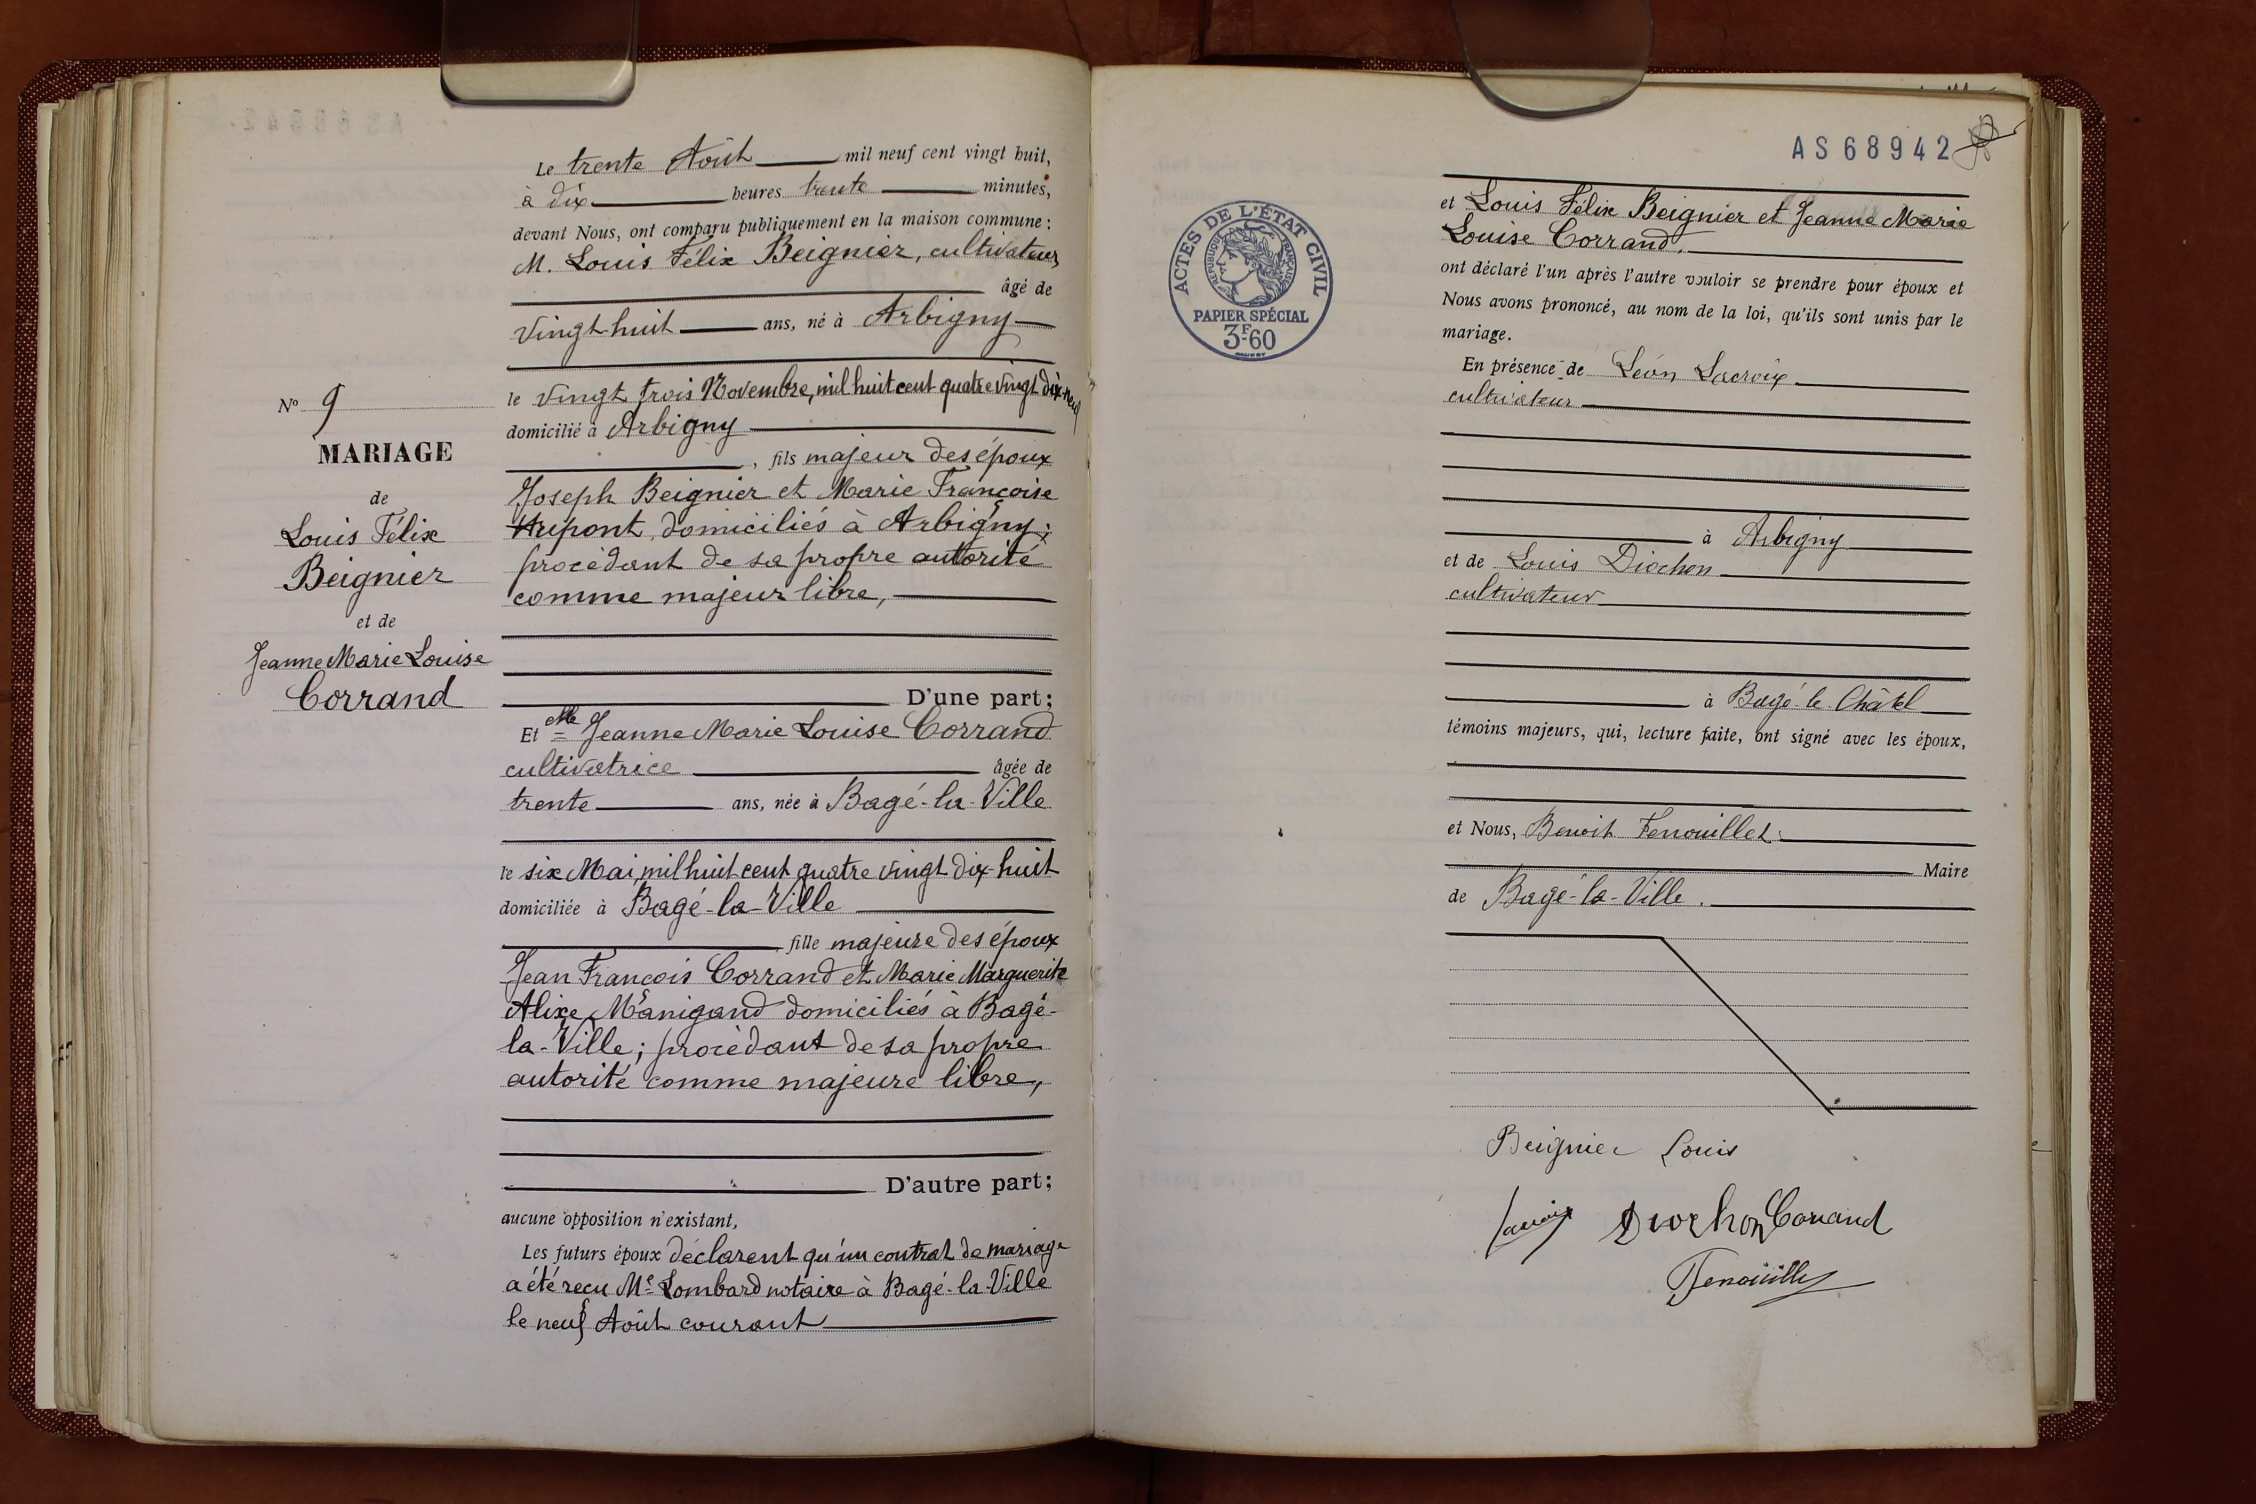 Le trente Août mil neuf cent vingt huit,
à dix heures trente minutes,
devant Nous, ont comparu publiquement en la maison commune :
M. Louis Félix Beignier, cultivateur,
âgé de
vingt-huit ans, né à Arbigny
le vingt trois Novembre, mil huit cent quatre vingt dix-neuf
domicilié à Arbigny
, fils majeur des époux
Joseph Beignier et Marie Françoise
domiciliés à Arbigny ;
procédant de sa propre autorité
comme majeur libre,
D'une part ;
Et Mlle Jeanne Marie Louise Corrand
cultivatrice âgée de
trente ans, née à Bagé-la-Ville
le six Mai, mil huit cent quatre vingt dix-huit
domiciliée à Bagé-la-Ville
fille majeure des époux
Jean François Corrand et Marie Marguerite
Alixe Manigand domiciliés à Bagé-
la-Ville ; procédant de sa propre
autorité comme majeure libre,
D'autre part ;
aucune opposition n'existant,
Les futurs époux déclarent qu'un contrat de mariage
a été reçu Me Lombard notaire à Bagé-la-Ville
le neuf Août courant
No 9
MARIAGE
de
Louis Félix
Beignier
et de
Jeanne Marie Louise
Corrand
AS 68942
ACTES DE L'ÉTAT CIVIL
RÉPUBLIQUE FRANÇAISE
PAPIER SPÉCIAL
3F.60
et Louis Félix Beignier et Jeanne Marie
Louise Corrand.
ont déclaré l'un après l'autre vouloir se prendre pour époux et
Nous avons prononcé, au nom de la loi, qu'ils sont unis par le
mariage.
En présence de Léon Lacroix
cultivateur
à Arbigny
et de Louis Diochon
cultivateur
à Bagé-le-Châtel
témoins majeurs, qui, lecture faite, ont signé avec les époux,
et Nous, Benoit Fenouillet
Maire
de Bagé-la-Ville.
Beignier Louis
Lacroix Diochon Corrand
Fenouillet